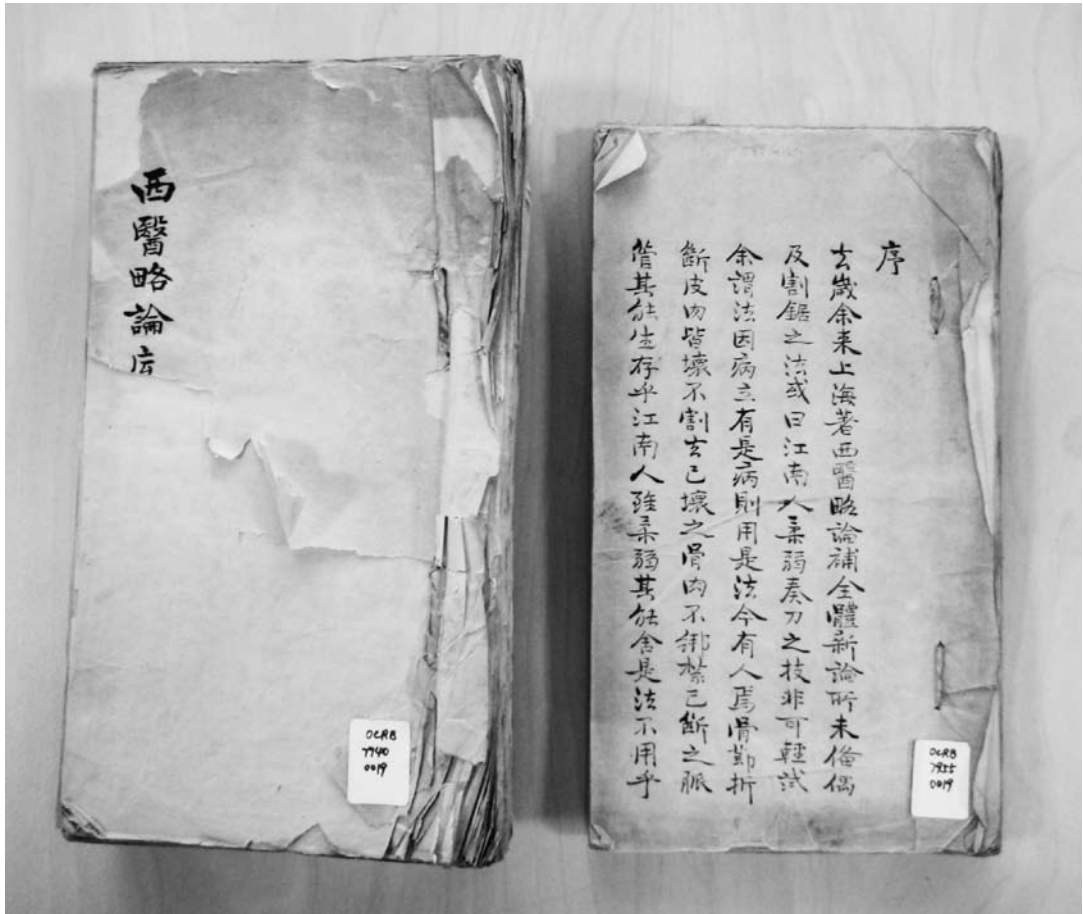 西醫略論序
OCRB
7940
0019
序
去歲余來上海著西醫略論補全體新論所未偹偶
及割鋸之法或曰江南人柔弱奏刀之技非可輕試
余謂法因病立有是病則用是法今有人焉骨節折
斷皮肉皆壞不割去已壞之骨肉不綁紮已斷之脈
管其能生存乎江南人雖柔弱其能舍是法不用乎
OCRB
7955
0019